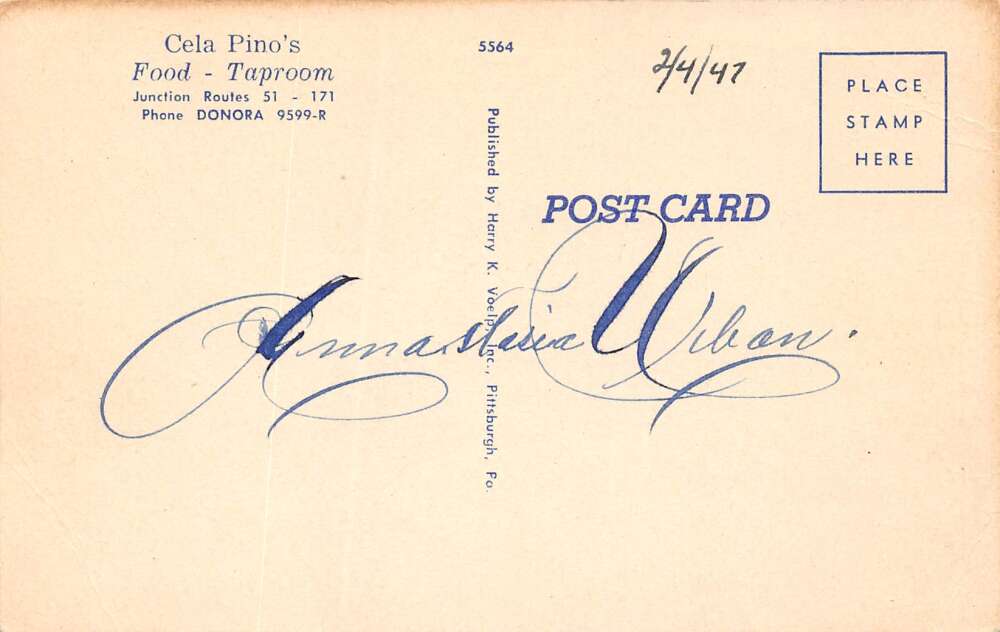 Cela Pino's
Food - Taproom
Junction Routes 51 - 171
Phone DONORA 9599-R
5564
2/4/47
PLACE
STAMP
HERE
Published by Harry K. Voelp, Inc., Pittsburgh, Pa.
POST CARD
Annastasia Urban.